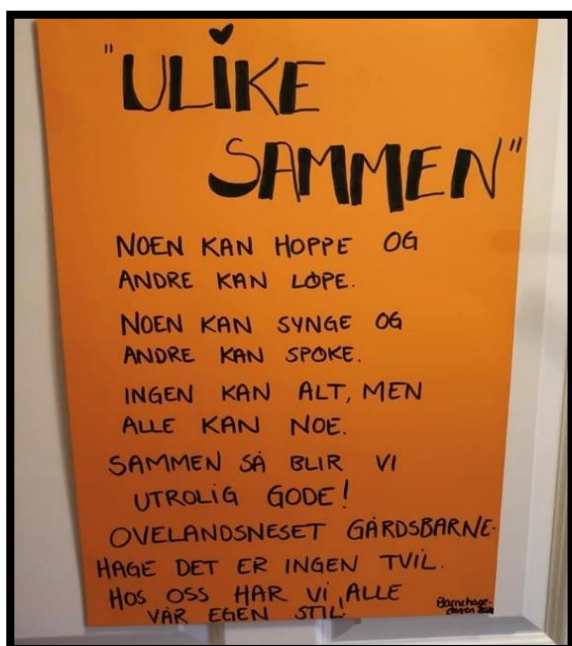 "ULIKE
SAMMEN"
NOEN KAN HOPPE OG
ANDRE KAN LØPE.
NOEN KAN SYNGE OG
ANDRE KAN SPØKE.
INGEN KAN ALT, MEN
ALLE KAN NOE.
SAMMEN SÅ BLIR VI
UTROLIG GODE!
OVELANDSNESET GÅRDSBARNE-
HAGE DET ER INGEN TVIL.
HOS OSS HAR VI ALLE
VÅR EGEN STIL!
Barnehage-
dagen